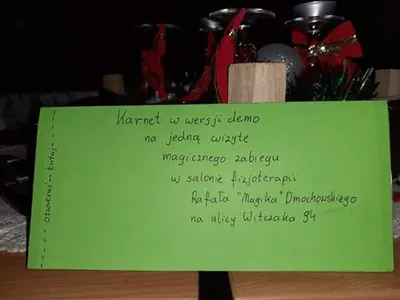 Karnet w wersji demo
na jedną wizytę
magicznego zabiegu
w salonie fizjoterapii
Rafała "Magika" Dmochowskiego
na ulicy Witczaka 94
otwierać tutaj